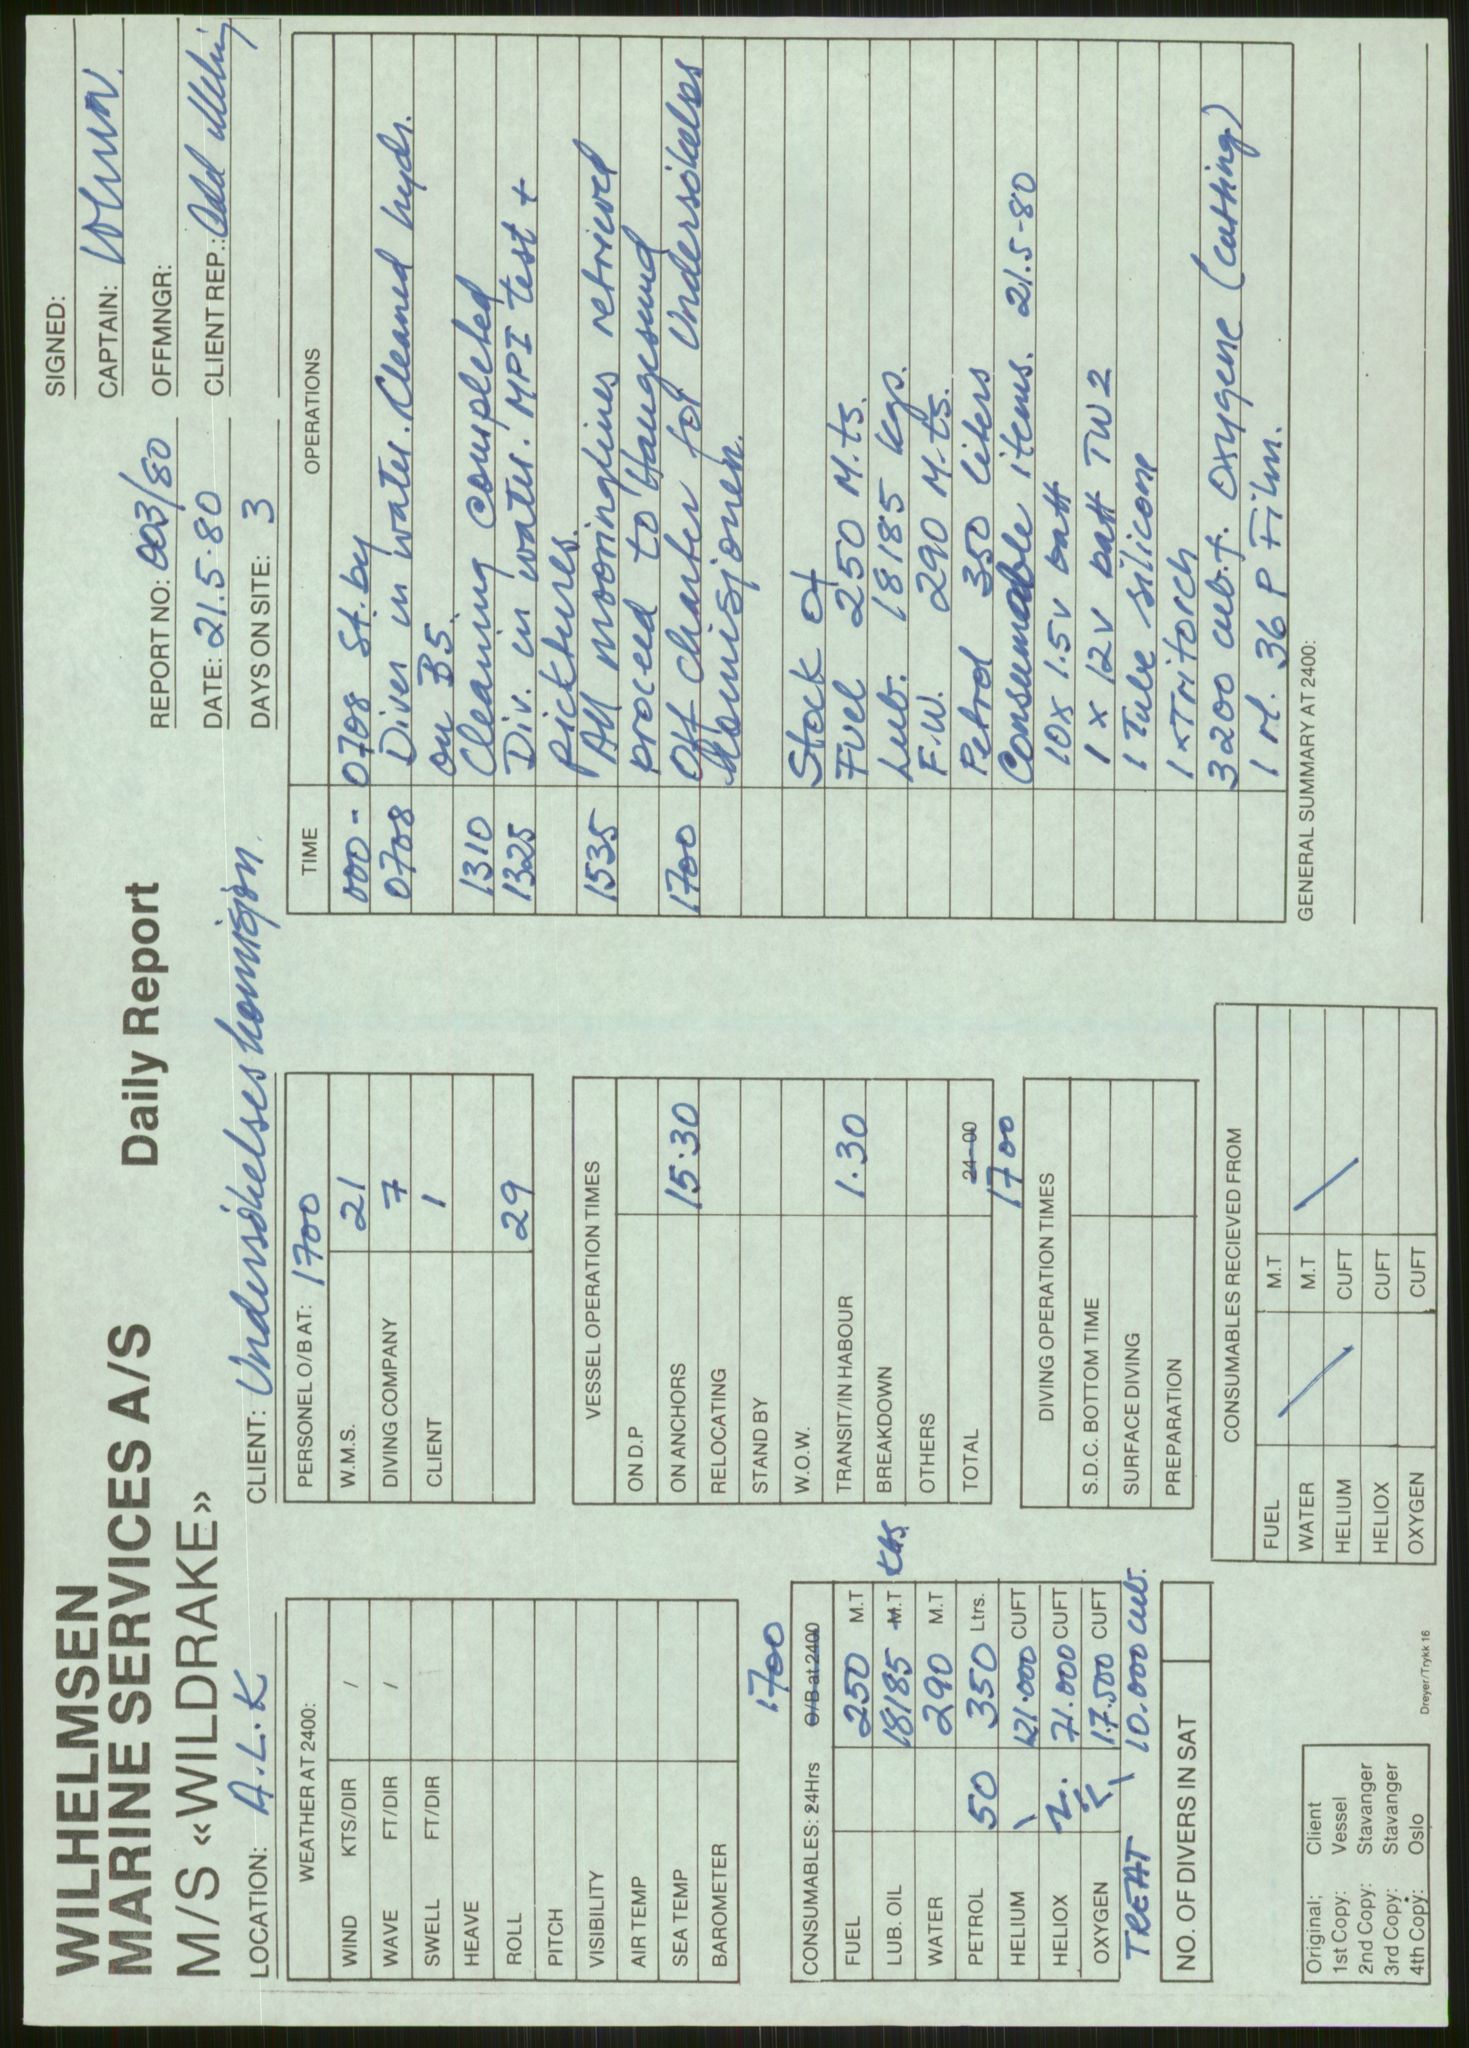 WILHELMSEN
MARINE SERVICES A/S
M/S «WILDRAKE»
Daily Report
REPORT NO: 003/80
DATE: 21.5.80
DAYS ON SITE: 3
SIGNED:
CAPTAIN:
OFFMNGR:
CLIENT REP.: Odd
LOCATION: A.L.K
CLIENT: Undersökelseskomisjon.
WEATHER AT 2400:
WIND KTS/DIR /
WAVE FT/DIR /
SWELL FT/DIR
HEAVE
ROLL
PITCH
VISIBILITY
AIR TEMP
SEA TEMP
BAROMETER
1700
CONSUMABLES: 24Hrs O/B at 2400
FUEL 250 M.T
LUB. OIL 18185 M.T KGS.
WATER 290 M.T
PETROL 50 350 Ltrs.
HELIUM \ 121.000 CUFT
HELIOX 71.000 CUFT
OXYGEN 17.500 CUFT
TREAT \ 10.000 cub.
NO. OF DIVERS IN SAT
Original; Client
1st Copy: Vessel
2nd Copy: Stavanger
3rd Copy: Stavanger
4th Copy: Oslo
Dreyer/Trykk 16
PERSONEL O/B AT: 1700
W.M.S. 21
DIVING COMPANY 7
CLIENT 1
29
VESSEL OPERATION TIMES
ON D.P
ON ANCHORS 15.30
RELOCATING
STAND BY
W.O.W.
TRANSIT/IN HABOUR 1.30
BREAKDOWN
OTHERS
TOTAL 24-00
1700
DIVING OPERATION TIMES
S.D.C. BOTTOM TIME
SURFACE DIVING
PREPARATION
CONSUMABLES RECIEVED FROM
FUEL M.T
WATER M.T
HELIUM CUFT
HELIOX CUFT
OXYGEN CUFT
TIME OPERATIONS
000- 0708 St.by
0708 Diver in water. Cleaned hydr.
on B5.
1310 Cleaning completed
1325 Div. in water. MPI test +
picktures.
1535 All mooringlines retrieved
proceed to Haugesund
1700 Off charter for Undersökelses
Komisjonen.
Stock of
Fuel 250 M.ts.
Lub. 18185 kgs.
F.W. 290 M.ts.
Petrol 350 liters
Consumable items. 21.5-80
10x 1.5v batt
1 x 12v batt TW2
1 Tube silicone
1 x Tritorch
3200 cub.f. Oxygene (cutting)
1 rl. 36 P Film.
GENERAL SUMMARY AT 2400: